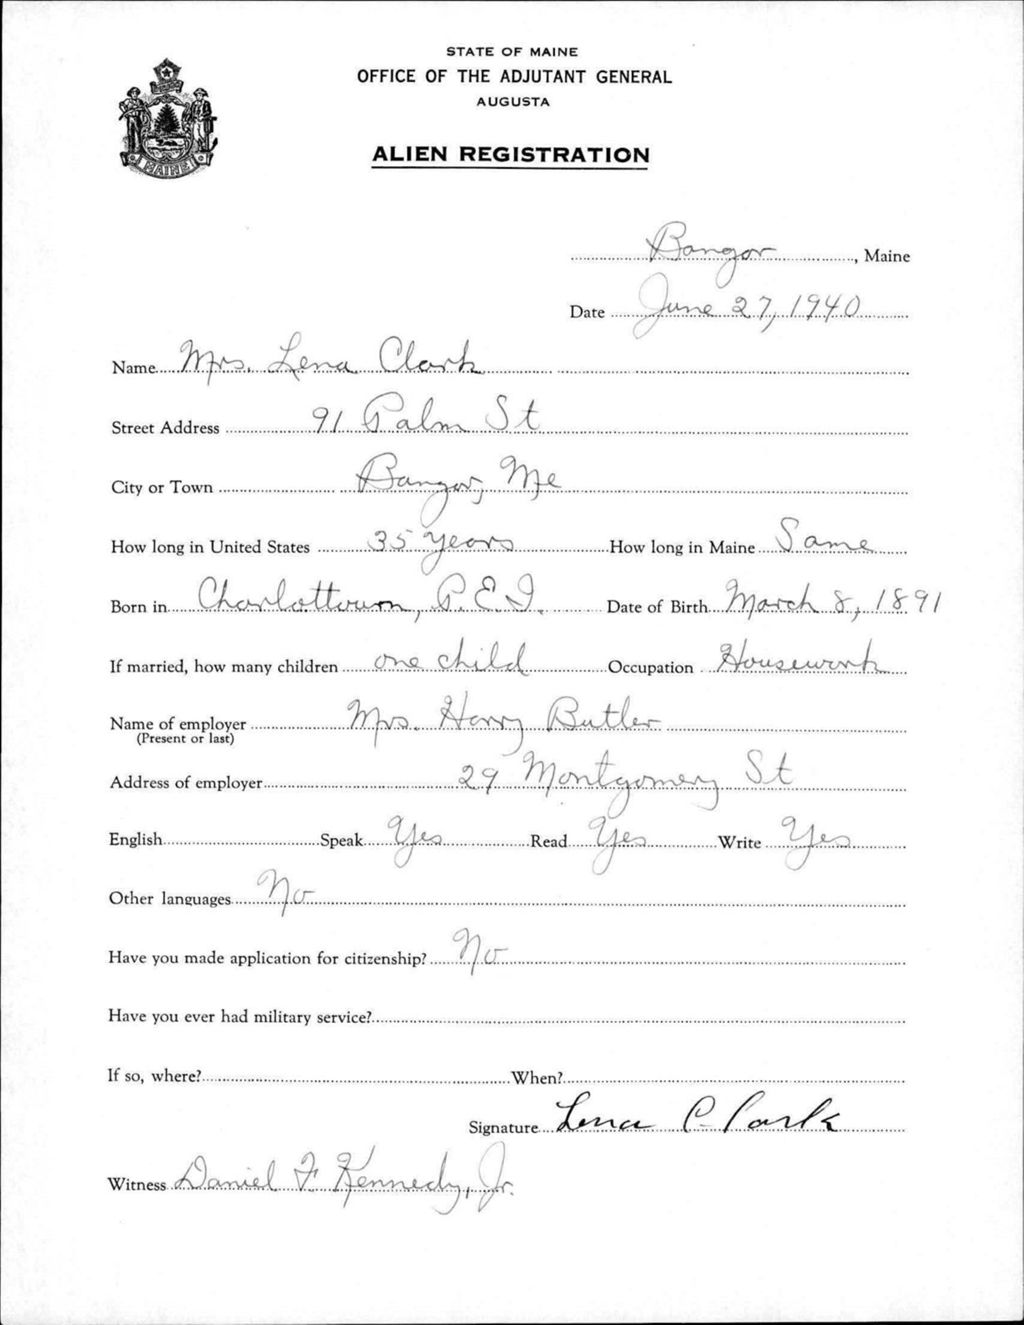 STATE OF MAINE
OFFICE OF THE ADJUTANT GENERAL
AUGUSTA
ALIEN REGISTRATION
MAINE
Bangor, Maine
Date June 27, 1940
Name Mrs. Lena Clark
Street Address 91 Palm St
City or Town Bangor, Me
How long in United States 35 Years How long in Maine Same
Born in Charlottown, P.E.I. Date of Birth March 8, 1891
If married, how many children one child Occupation Housework
Name of employer Mrs. Harry Butler
(Present or last)
Address of employer 29 Montgomery St
English Speak Yes Read Yes Write Yes
Other languages No
Have you made application for citizenship? No
Have you ever had military service?
If so, where? When?
Signature Lena Clark
Witness Daniel F. Kennedy, Jr.